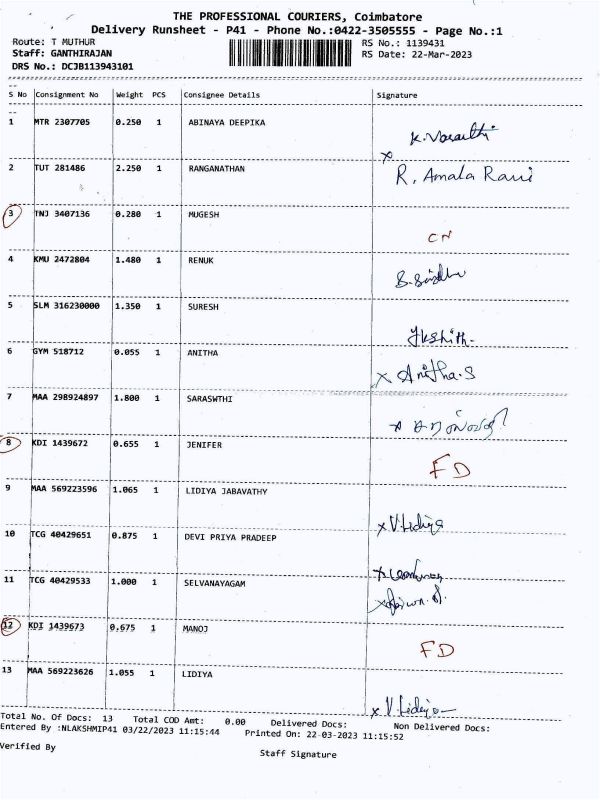 THE PROFESSIONAL COURIERS, Coimbatore
Delivery Runsheet - P41 - Phone No.:0422-3505555 - Page No.:1
Route: T MUTHUR RS No.: 1139431
Staff: GANTHIRAJAN RS Date: 22-Mar-2023
DRS No.: DCJB113943101
S No Consignment No Weight PCS Consignee Details Signature
1 MTR 2307705 0.250 1 ABINAYA DEEPIKA
2 TUT 281486 2.250 1 RANGANATHAN R. Amala Rani
3 TNJ 3407136 0.280 1 MUGESH CN
4 KMU 2472804 1.480 1 RENUK
5 SLM 316230000 1.350 1 SURESH
6 GYM 518712 0.055 1 ANITHA x Anitha.S
7 MAA 298924897 1.800 1 SARASWTHI
8 KDI 1439672 0.655 1 JENIFER FD
9 MAA 569223596 1.065 1 LIDIYA JABAVATHY x V.Lidiya
10 TCG 40429651 0.875 1 DEVI PRIYA PRADEEP
11 TCG 40429533 1.000 1 SELVANAYAGAM
12 KDI 1439673 0.675 1 MANOJ FD
13 MAA 569223626 1.055 1 LIDIYA x V.Lidiya
Total No. Of Docs: 13 Total COD Amt: 0.00 Delivered Docs: Non Delivered Docs:
Entered By :NLAKSHMIP41 03/22/2023 11:15:44 Printed On: 22-03-2023 11:15:52
Verified By Staff Signature